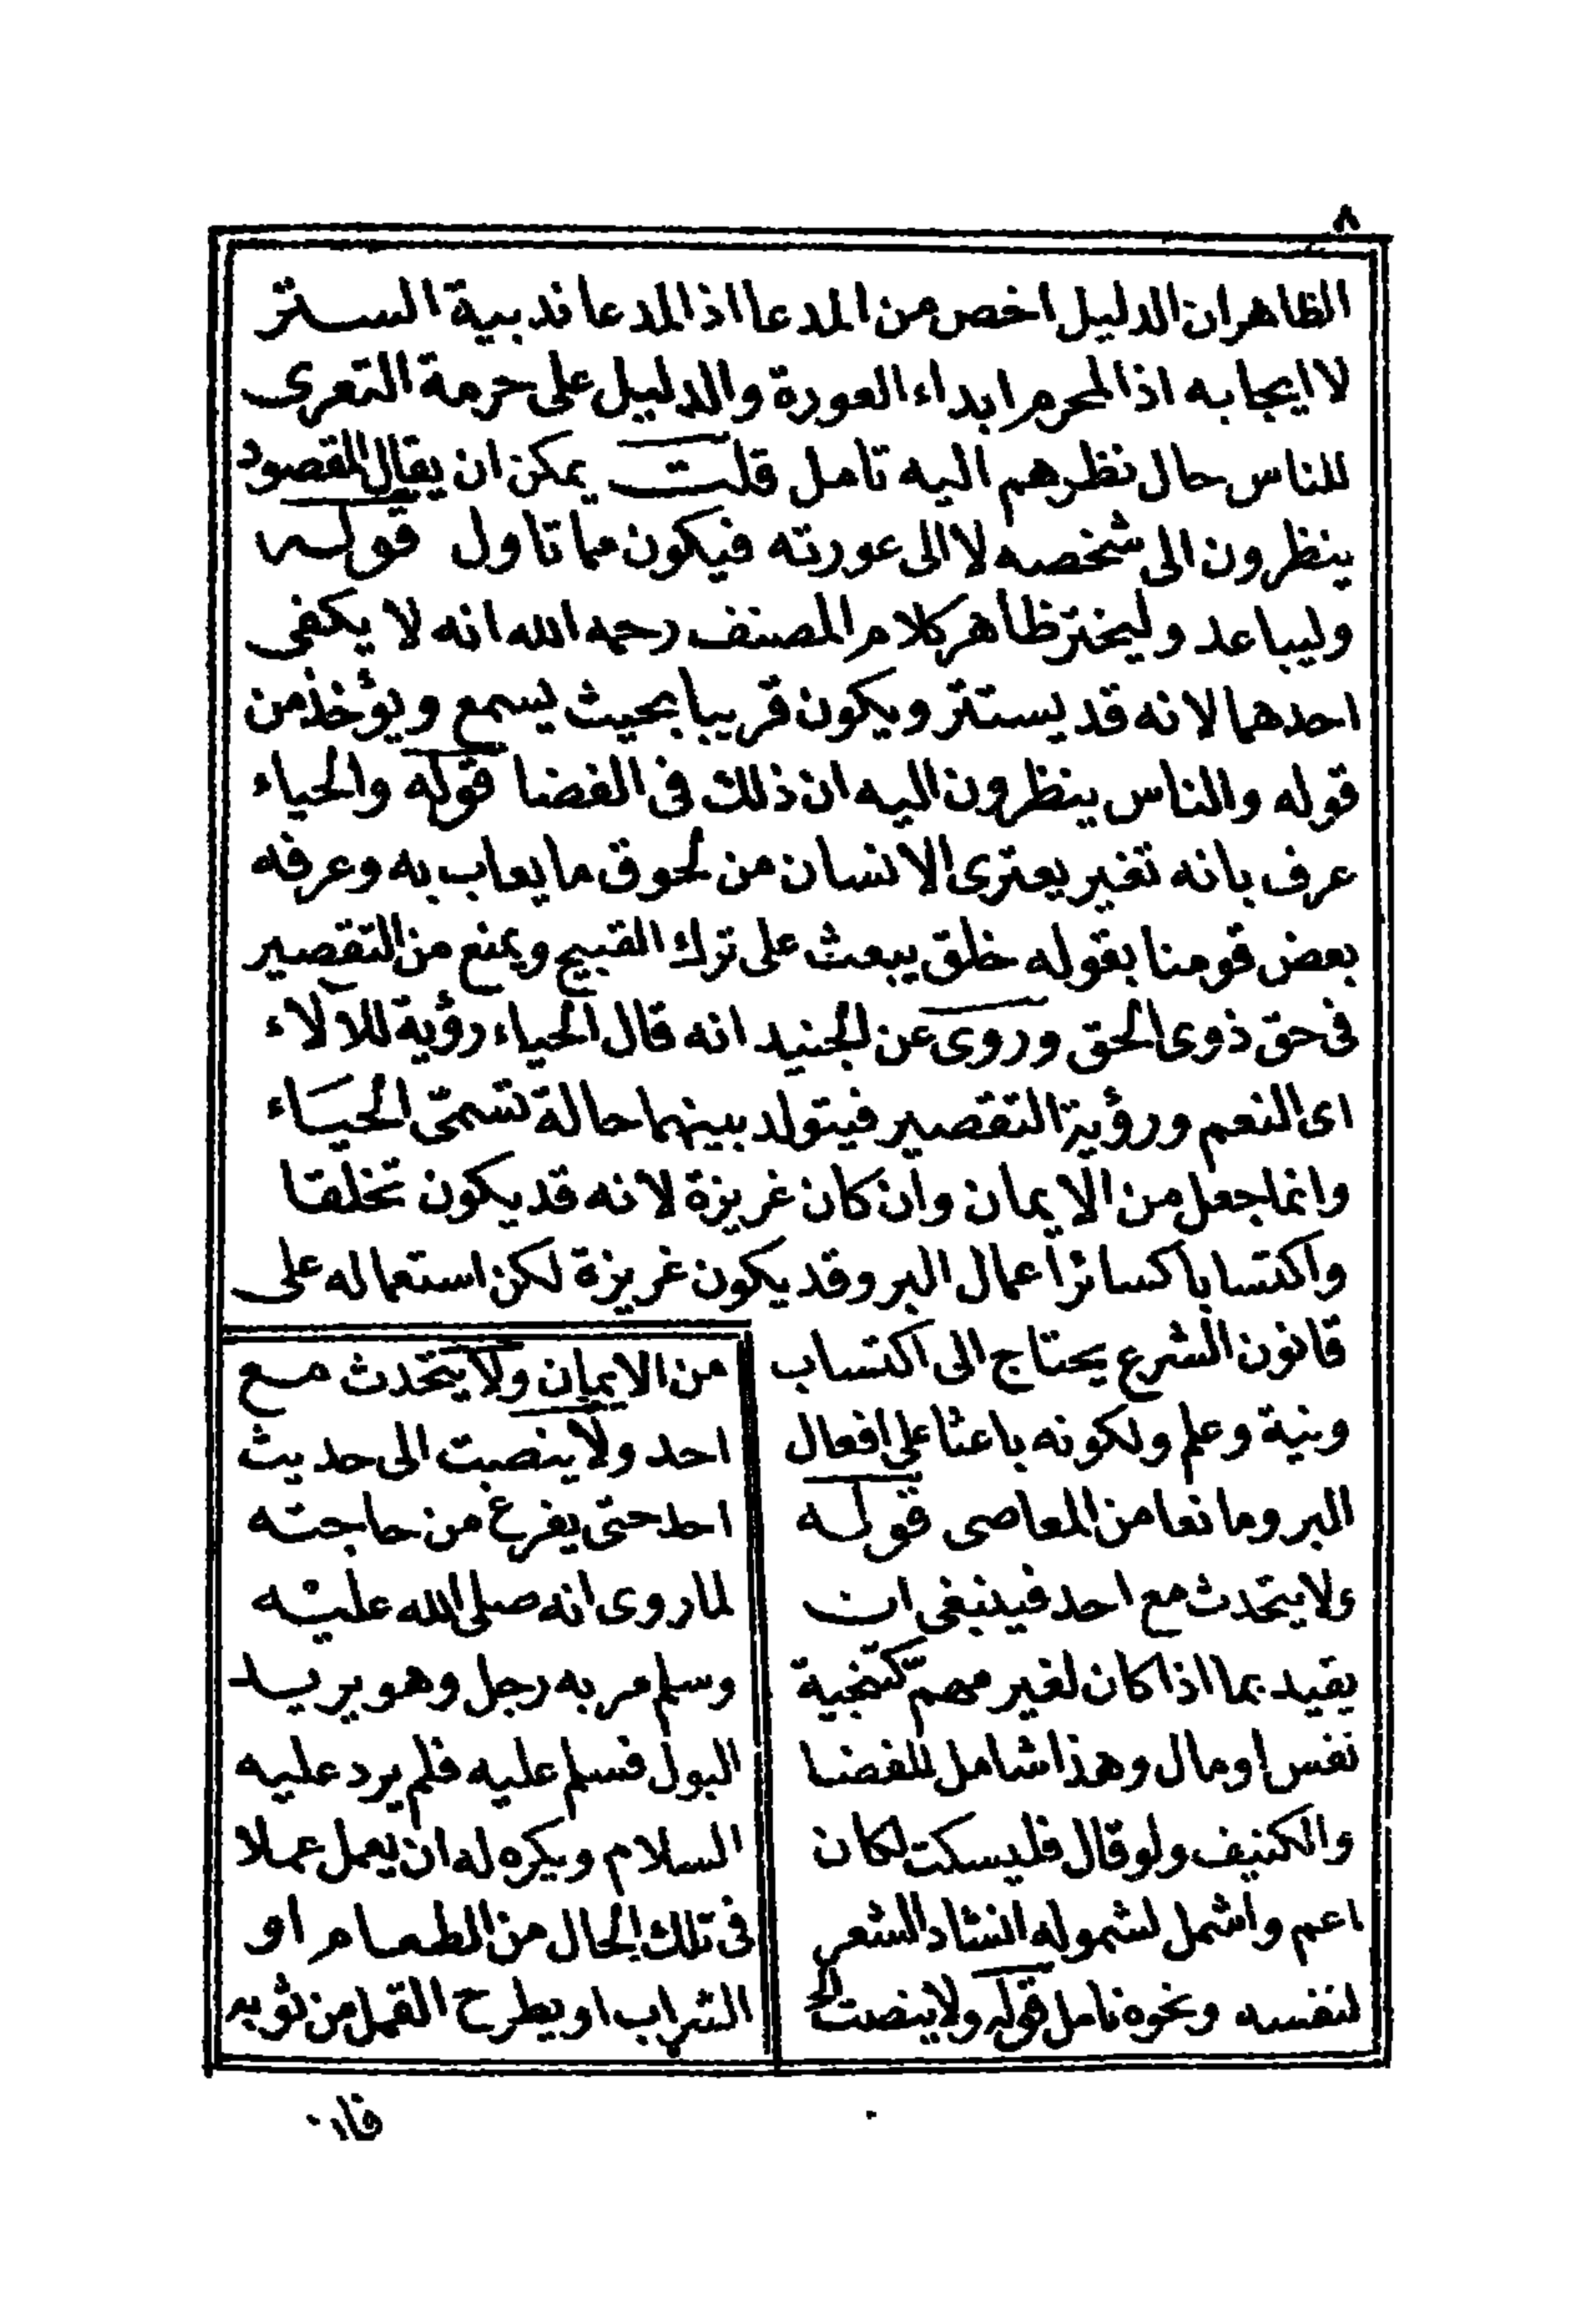 ٨
الظاهران الدليل اخص من المدعا اذ المدعا ندبية الستر
لا ايجابه اذ المحرم ابداء العورة والدليل على حرمة التعرى
للناس حال نظرهم اليه تامل قلت يمكن ان يقال المقصود
ينظرون الى شخصه لا الى عورته فيكون مما تاول قوله
وليباعد وليختر ظاهر كلام المصنف رحمه الله انه لا يكفى
احدهما لانه قد يستتر ويكون قريبا بحيث يسمع ويؤخذ من
قوله والناس ينظرون اليه ان ذلك فى الفضا قوله والحياء
عرف بانه تغير يعترى الانسان من لحوق ما يعاب به وعرفه
بعض قومنا بقوله خلق يبعث على ترك القبيح ويمنع من التقصير
فى حق ذوى الحق وروى عن الجنيد انه قال الحياء رؤية للآلاء
اى النعم ورؤية التقصير فيتولد بينهما حالة تسمّى الحيَاء
وانما جعل من الايمان وان كان غريزة لانه قد يكون تخلقا
واكتسابا كسائر اعمال البر وقد يكون غريزة لكن استعماله على
قانون الشرع يحتاج الى اكتساب
ونية وعلم ولكونه باعثا على افعال
البر ومانعا من المعاصى قوله
ولا يتحدث مع احد فينبغى ان
يقيد بما اذا كان لغير مهمّ كتنجية
نفس او مال وهذا شامل للفضا
والكنيف ولو قال فليسكت لكان
اعم واشمل لشموله انشاد الشعر
لنفسه ونحوه تامل قوله ولا ينصت الخ
من الايمان ولا يتحدث مع
احد ولا ينصت الى حديث
احد حتى يفرغ من حاجته
لما روى انه صلى الله عليه
وسلم مر به رجل وهو يريد
البول فسلم عليه فلم يرد عليه
السلام ويكره له ان يعمل عملا
فى تلك الحال من الطعام او
الشراب او يطرح القمل من ثوبه